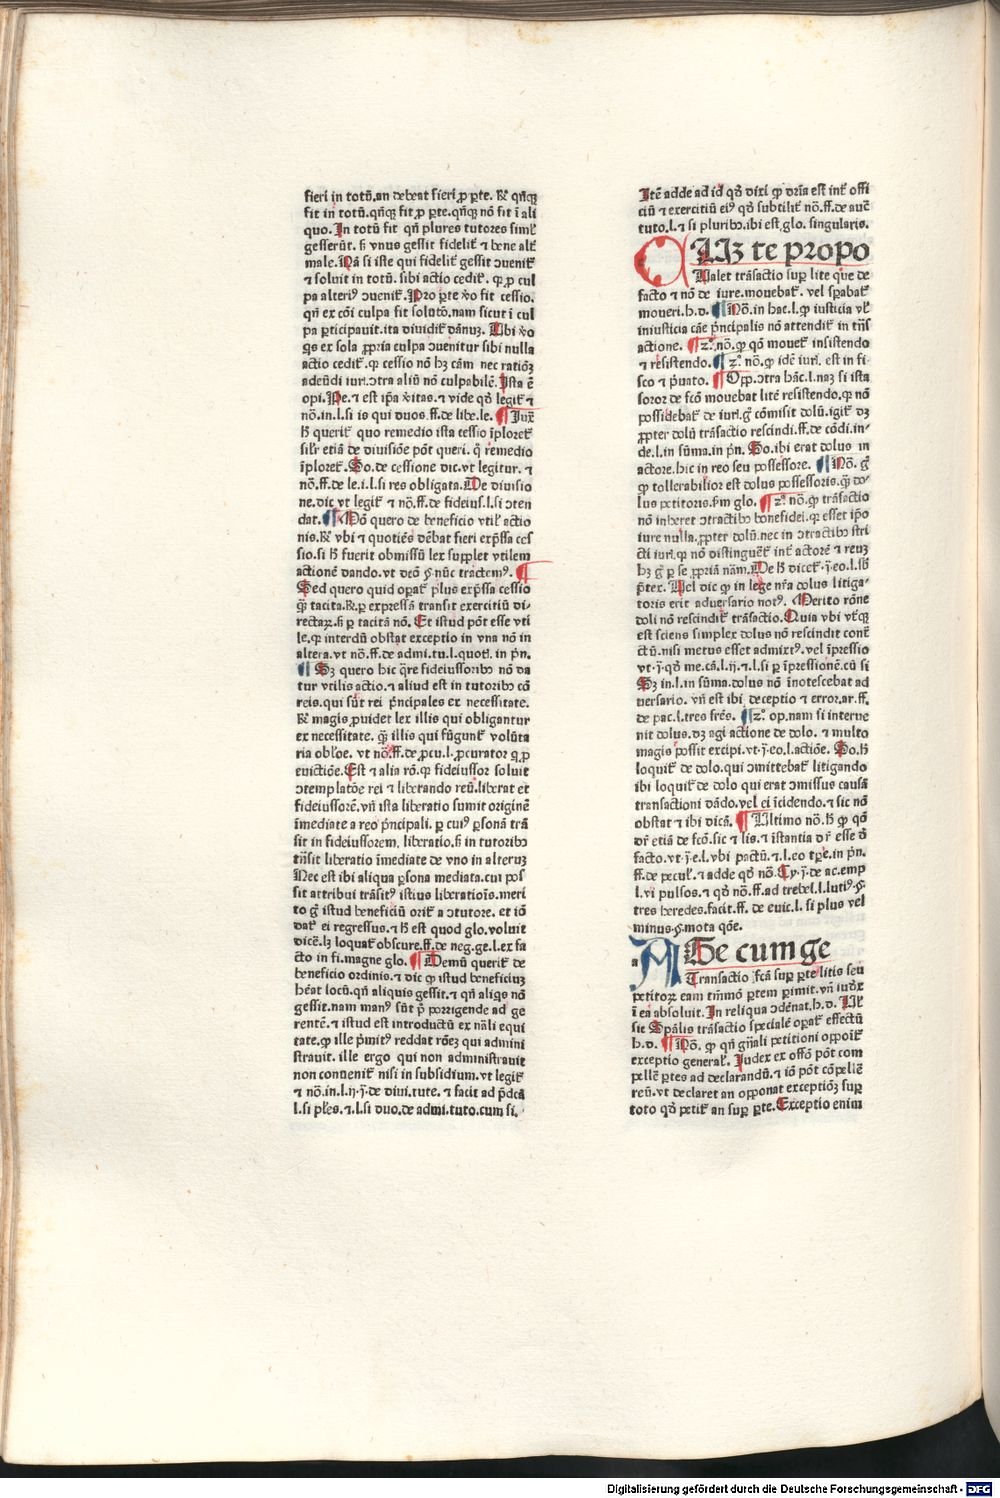 fieri in totū.an debeat fieri ꝓ ꝑte. R̃ qñqꝫ
fit in totū.qñqꝫ fit ꝓ ꝑte.qñqꝫ nō fit ī ali
quo. In totū fit qñ plures tutores simł
gesserūt. s̄ vnus gessit fidelit̃ ⁊ bene alt̃
male. Nā si iste qui fidelit̃ gessit ꝯuenit̃
⁊ soluit in totū. sibi actio cedit̃. qꝛ ꝓ cul
pa alteriꝰ ꝯuenit̃. Pro ꝑte v̇o fit cessio.
qñ ex cōi culpa fit solutō.nam sicut ī cul
pa ꝑticipauit.ita diuidit̃ dānuꝫ. Ubi v̇o
qs ex sola ꝓpria culpa ꝯuenitur sibi nulla
actio cedit̃. qꝛ cessio nō hꝫ cām nec ratioꝫ
adeūdi iuri.ꝯtra aliū nō culpabilē. Ista ē
opi. Pe. ⁊ est ip̄a v̇itas. ⁊ vide qđ legit̃ ⁊
nō.in.l.si is qui duos.ff.de libe.le. ¶ Iuxͣ
h̄ querit̃ quo remedio ista cessio īploret̃
sił'r etiā de diuisiōe pōt queri. q̊ remedio
īploret̃. So. de cessione dic.vt legitur. ⁊
nō.ff.de le.i.l.si res obligata. De diuisio
ne.dic vt legit̃ ⁊ nō.ff.de fideius.l.si ꝯten
dat. ¶ Mō quero de beneficio vtił actio
nis. R̃ vbi ⁊ quotiēs dēbat fieri exp̄ssa ces
sio.si h̄ fuerit obmissū lex supplet vtilem
actionē dando.vt dcō § nūc tractemꝰ. ¶
Sed quero quid opat̃ plus exp̄ssa cessio
q̃ tacita.R̃.ꝑ expressā transit exercitiū di-
rectaꝝ.s̄ ꝑ tacitā nō. Et istud pōt esse vti
le.qꝛ interdū obstat exceptio in vna nō in
altera.vt nō.ff.de admi.tu.l.quotī. in pñ.
¶ Sꝫ quero hic q̄re fideiussoribꝫ nō da
tur vtilis actio.⁊ aliud est in tutoribꝫ cō
reis.qui sūt rei pͥncipales ex necessitate.
R̃ magis ꝓuidet lex illis qui obligantur
ex necessitate. q̃ illis qui fūgunt̃ volūta
ria obłoe. vt nō.ff.de ꝓcu.l.ꝓcurator q ꝓ
euictiōe. Est ⁊ alia rō.qꝛ fideiussor soluit
ꝯtemplatōe rei ⁊ liberando reū.liberat et
fideiussorē.vñ ista liberatio sumit originē
īmediate a reo pͥncipali. ꝑ cuiꝰ ꝑsonā trā
sit in fideiussorem, liberatio. s̄ in tutoribꝫ
trāsit liberatio īmediate de vno in alteruꝫ
Nec est ibi aliqua ꝑsona mediata.cui pos
sit attribui trāsitꝰ istius liberatiōis.meri
to g̊ istud beneficiū orit̃ a ꝯtutore. et iō
dat̃ ei regressus.⁊ h̄ est quod glo.voluit
dicē.lꝫ loquat̃ obscure.ff.de neg.ge.l.ex fa
cto in fi.magne glo. ¶ Demū querit̃ de
beneficio ordinis.⁊ dic qꝫ istud beneficiuꝫ
hēat locū.qñ aliquis gessit.⁊ qñ aliqs nō
gessit.nam manꝰ sūt pͥ porrigende ad ge
rentē. ⁊ istud est introductū ex nāli equi
tate.qꝫ ille pͥmitꝰ reddat rōeꝫ qui admini
strauit. ille ergo qui non administrauit
non conuenit̃ nisi in subsidium.vt legit̃
⁊ nō.in.l.ij.ꝯ̄.de diui.tute. ⁊ facit ad p̄dcā
l.si ples.⁊.l.si duo.de admi.tuto.cum si.
Itē adde ad id qđ dixi qꝫ dr̄ia est int̃ offi
ciū ⁊ exercitiū eiꝰ qđ subtilit̃ nō.ff.de auc̄
tuto.l.⁊ si pluribꝫ.ibi est glo. singularis.
Uꝫ te propo
Ualet trāsactio suꝑ lite que de
facto ⁊ nō de iure.mouebat̃. vel sꝑabat̃
moueri.h.d. ¶ Nō.in hac.l.qꝫ iusticia vł
iniusticia cāe pͥncipalis nō attendit̃ in trās
actione. ¶ zͦ. nō.qꝫ qō mouet̃ insistendo
⁊ resistendo. ¶ zͦ nō.qꝫ idē iuri. est in fi-
sco ⁊ pͥuato. ¶ Opp.ꝯtra hāc.l.naꝫ si ista
soror de fcō mouebat litē resistendo.qꝛ nō
possidebat̃ de iuri.g̊ cōmisit dolū.igit̃ dꝫ
ꝓpter dolū trāsactio rescindi.ff.de cōdi.in-
de.l.in sūma.in pñ. So.ibi erat dolus in
actore.hic in reo seu possessore. ¶ Nō. g̊
qꝫ tollerabilior est dolus possessoris.q̃ do-
lus petitoris.s̄m glo. ¶ zͦ nō.qꝫ trāsactio
nō inheret ꝯtractibꝫ bonefidei.qꝛ esset ip̄o
iure nulla.ꝓpter dolū.nec in ꝯtractibꝫ stri
cti iuri.qꝛ nō distinguet̃ int̃ actorē ⁊ reuꝫ
hꝫ g̊ ꝑ se ꝓpriā nām. De h̄ dicet̃.ꝯ̄.eo.l.sb̄
p̄tex. Uel dic qꝫ in lege nr̄a dolus litiga-
toris erit aduersario notꝰ. Merito rōne
doli nō rescindit̃ trāsactio. Quia vbi vt̃qꝫ
est sciens simplex dolus nō rescindit cont̃
ctū.nisi metus esset admixtꝰ. vel īpressio
vt.ꝯ̄.qđ me.cā.l.ij.⁊.l.si ꝑ īpressionē.cū si
Sꝫ in.l.in sūma.dolus nō īnotescebat ad
uersario. vñ est ibi deceptio ⁊ error.ar.ff.
de pac.l.tres frēs. ¶ zͦ. op.nam si interue
nit dolus.dꝫ agi actione de dolo. ⁊ multo
magis possit excipi.vt.ꝯ̄.eo.l.actiōe. So.h̄
loquit̃ de dolo.qui ꝯmittebat̃ litigando
ibi loquit̃ de dolo qui erat ꝯmissus causā
transactioni dādo.vel ei īcidendo.⁊ sic nō
obstat ⁊ ibi dicā. ¶ Ultimo nō.h̄ qꝫ qō
dr̄ etiā de fcō.sic ⁊ lis.⁊ īstantia dr̄ esse d̄
facto.vt.ꝯ̄.e.l.vbi pactū.⁊.l.eo tꝑe.in pñ.
ff.de pecuł.⁊ adde qđ nō. Cy.ꝯ̄.de ac.emp
l.vi pulsos.⁊ qđ nō.ff.ad trebel.l.lutiꝰ.§
tres heredes.facit.ff. de euic.l. si plus vel
minus.§.mota qōe.
a
He cum ge
Transactio fcā suꝑ ꝑte litis seu
petitoꝝ eam tm̄mō ꝑtem ꝑimit.vñ iudex
ī eā absoluit. In reliqua ꝯdēnat.h.d. Uł
sic Spālis trāsactio specialē oꝑat̃ effectū
h.d. ¶ Nō. qꝫ qñ gn̄ali petitioni oppoit̃
exceptio general̃. Iudex ex offō pōt com
pellē ꝑtes ad declarandū.⁊ iō pōt cōpellē
reū.vt declaret an opponat exceptiōꝫ suꝑ
toto qđ petit̃ an suꝑ ꝑte. Exceptio enim
Digitalisierung gefördert durch die Deutsche Forschungsgemeinschaft - DFG